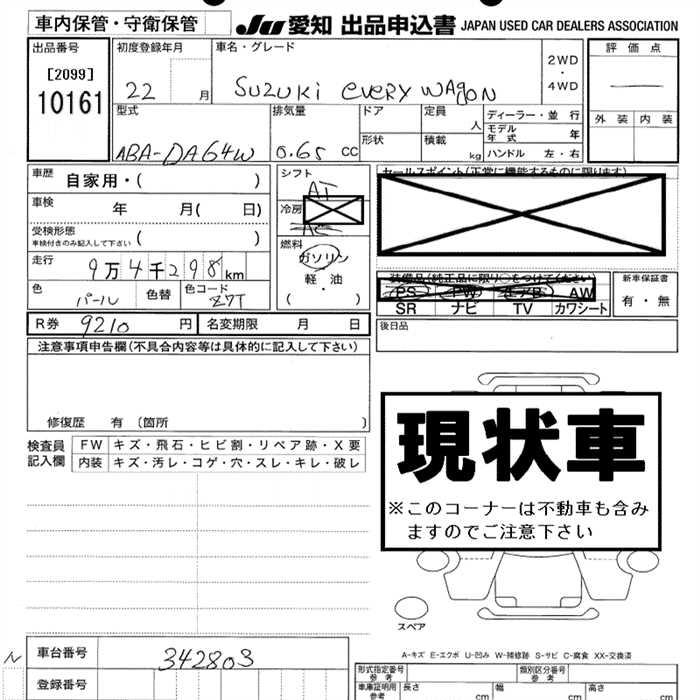 車内保管・守衛保管
JU 愛知 出品申込書 JAPAN USED CAR DEALERS ASSOCIATION
出品番号
[2099]
10161
初度登録年月
22 月
車名・グレード
SUZUKI EVERY WAGON
2WD
・
4WD
評価点
外装 内装
型式
ABA-DA64W
排気量
0.65 cc
ドア
形状
定員
人
積載
kg
ディーラー・並行
モデル年式 年
ハンドル 左・右
車歴 自家用・( )
車検 年 月( 日)
受検形態
車検付きのみ記入して下さい ( )
走行 9万4千298 km
色 パール
色替
色コード Z7T
シフト
AT
冷房
AC
燃料
ガソリン
軽・油
( )
セールスポイント(正常に機能するものに限ります)
装備品(純正品に限り○をつけてください)
PS PW エアB AW
SR ナビ TV カワシート
新車保証書
有・無
後日品
R券 9210 円
名変期限 月 日
注意事項申告欄(不具合内容等は具体的に記入して下さい)
修復歴 有 (箇所 )
検査員
記入欄
FW キズ・飛石・ヒビ割・リペア跡・X要
内装 キズ・汚レ・コゲ・穴・スレ・キレ・破レ
現状車
※このコーナーは不動車も含み
ますのでご注意下さい
スペア
A-キズ E-エクボ U-凹み W-補修跡 S-サビ C-腐食 XX-交換済
N
車台番号 342803
登録番号
形式指定番号
参考
類別区分番号
参考
車庫証明用
参考
長さ cm
幅 cm
高さ cm